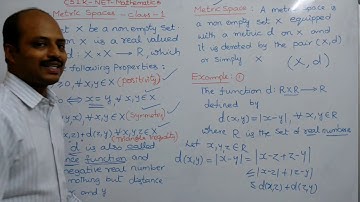 CSIR-NET-Mathematics
Metric Spaces - Class-1
X be a non empty set
on X is a real valued
d: X×X→R, which
following Properties:
≥0, ∀ x,y∈X (positivity)
⇔ x=y, ∀ x,y∈X
∀ x,y∈X (Symmetry)
+d(z,y), ∀ x,y,z∈X
(triangle inequality)
d is also called
function and
negative real number
nothing but distance
x and y
Metric Space: A metric space is
a non empty set X equipped
with a metric d on X and
it is denoted by the pair (X,d)
or simply X (X,d)
Example: ①
The function d: R×R→R
defined by
d(x,y)=|x-y|, ∀ x,y∈R
where R is the set of real numbers
Let x,y,z∈R
d(x,y)=|x-y|=|x-z+z-y|
≤|x-z|+|z-y|
≤d(x,z)+d(z,y)